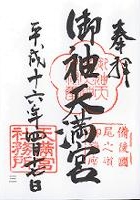 奉拝
備後國
尾之道
御袖天満宮
平成十六年四月十七日
天満宮
社務所